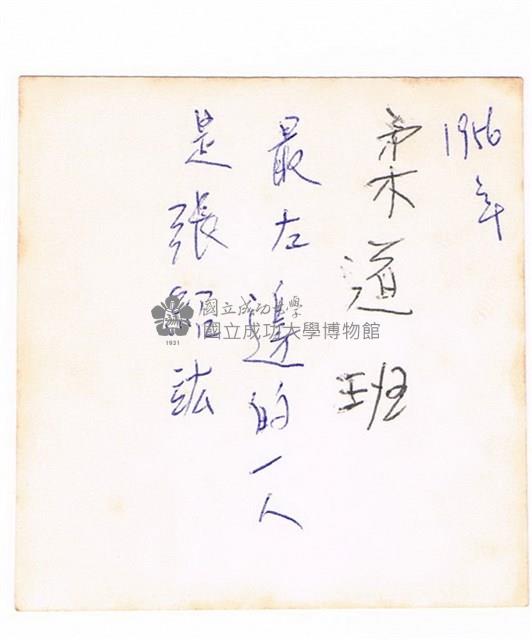 1956年
柔道班
最左邊的一人
是張紹訟
國立成功大學
國立成功大學博物館
1931